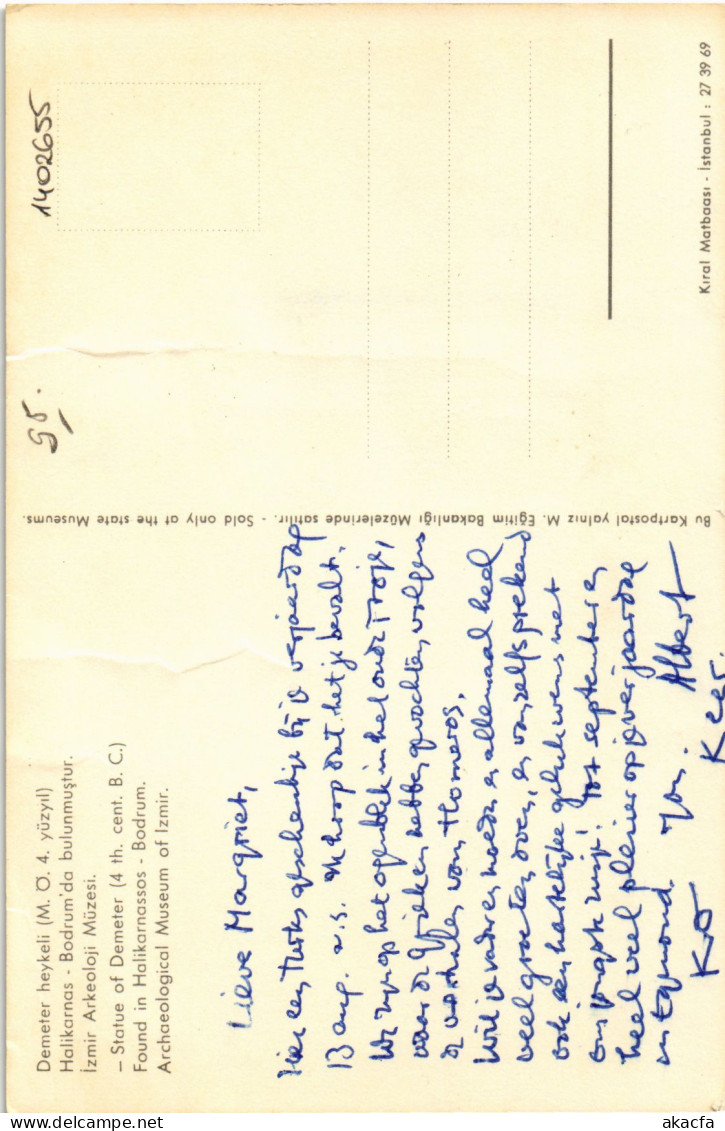 Demeter heykeli (M. Ö. 4. yüzyıl)
Halikarnas - Bodrum'da bulunmuştur.
İzmir Arkeoloji Müzesi.
– Statue of Demeter (4 th. cent. B. C.)
Found in Halikarnassos - Bodrum.
Archaeological Museum of Izmir.
Lieve Margriet,
Hier een Turks geschenkje bij je verjaardag
13 aug. a.s. Ik hoop dat het je bevalt.
We zijn op het ogenblik in het oude Troje,
waar de Grieken hebben gevochten, volgens
de verhalen van Homeros.
Wil je vader en moeder en allemaal heel
veel groeten doen, en vanzelfsprekend
ook een hartelijke gelukwens met
jongste zusje! Tot september en
heel veel plezier op je verjaardag
in Egmond
Albert
Kees.
Bu Kartpostal yalnız M. Eğitim Bakanlığı Müzelerinde satılır. - Sold only at the state Museums.
95.
1402655
Kıral Matbaası - İstanbul : 27 39 69
www.delcampe.net
akacfa